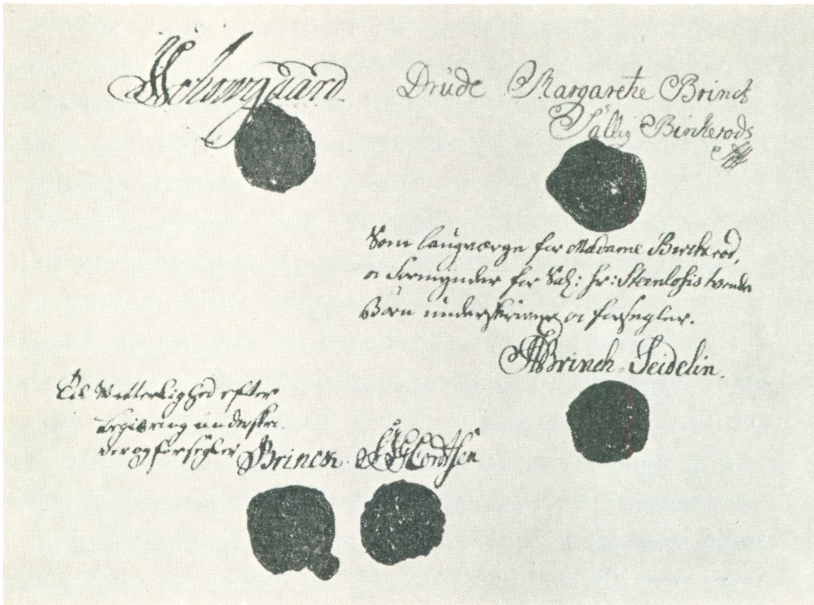 Schougaard
Drude Margarethe Brinck
Sallig Birkerods
Som laugværge for Madame Birckerod,
og Formynder for Sal: Hr: Steenlosis tvende
Börn underskriver og forsegler.
Brinch Seidelin.
Til Witterlighed efter
begiæring underskri-
ver og forsegler Brinck